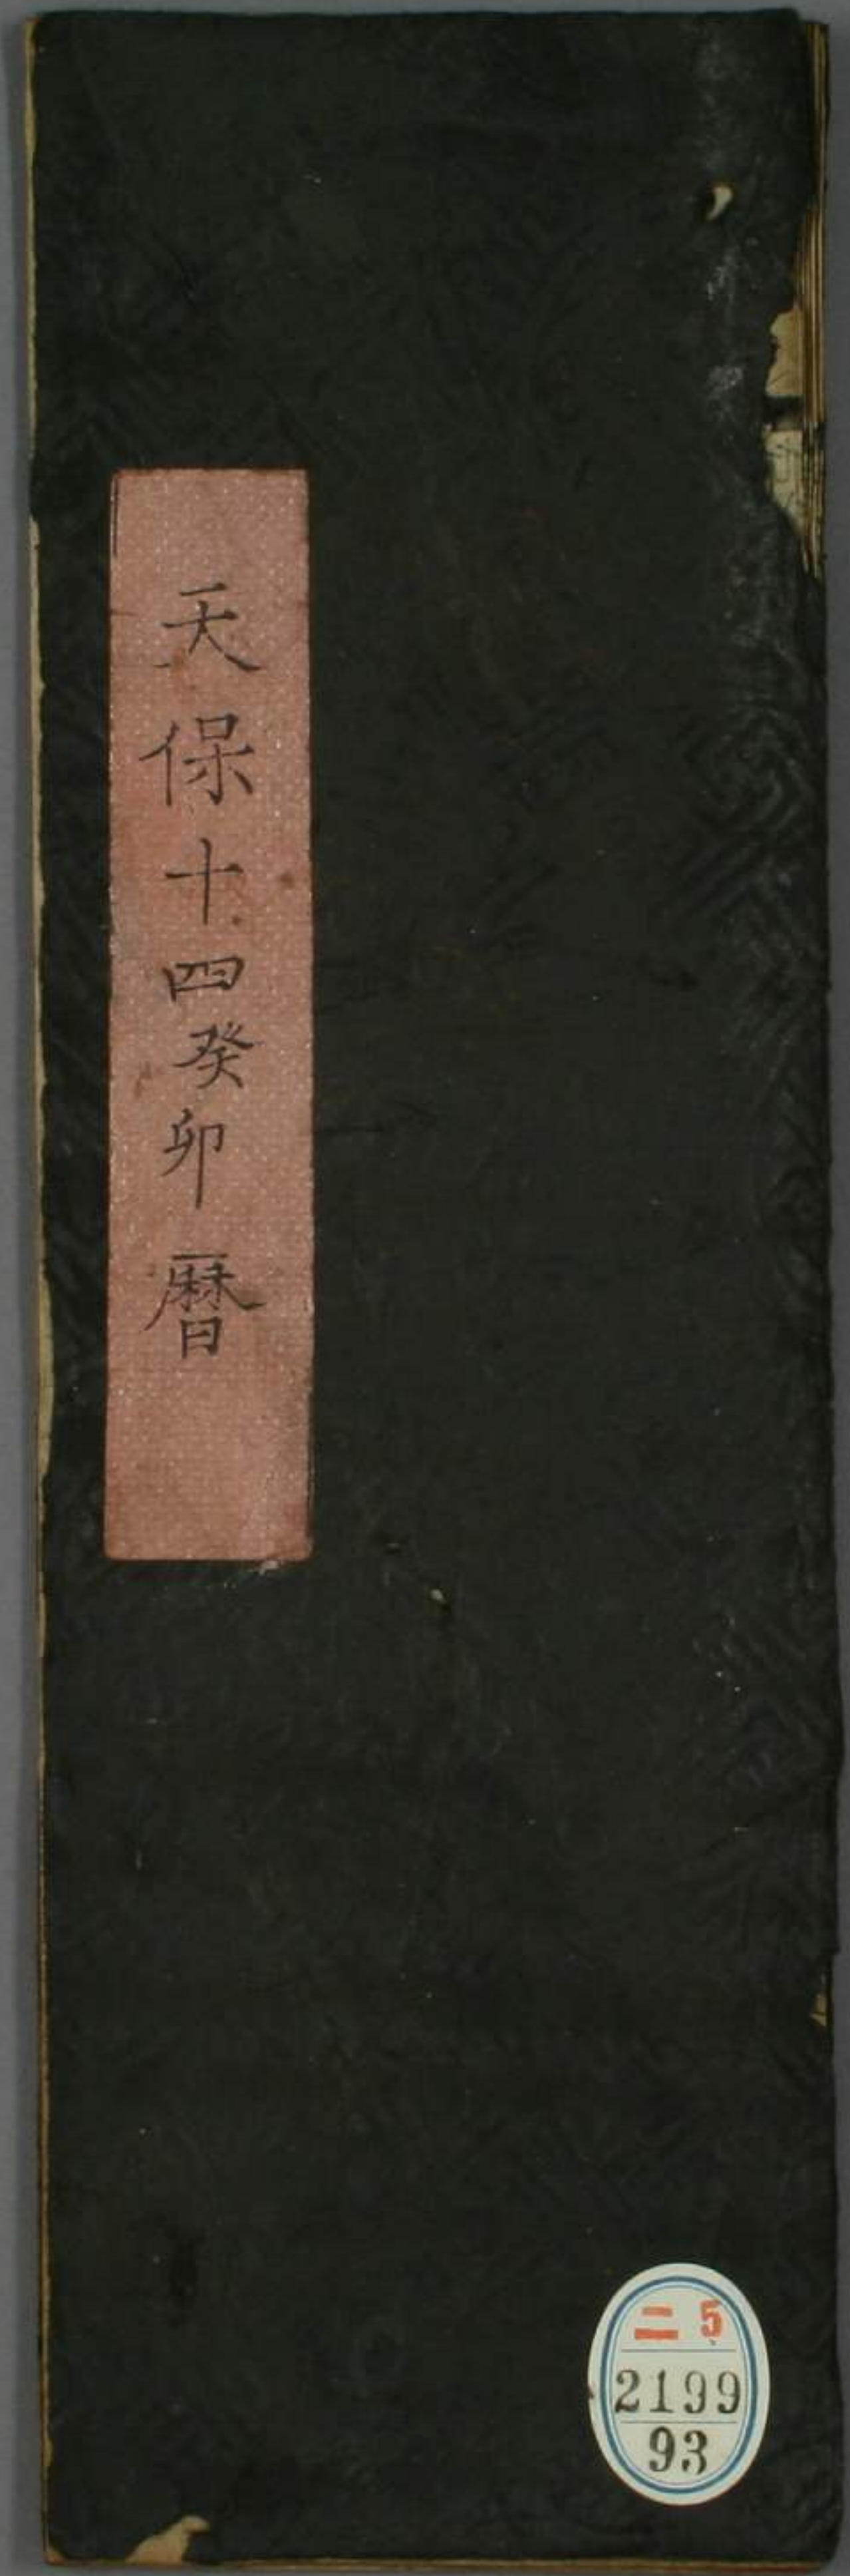 天保十四癸卯暦
二 5
2199
93